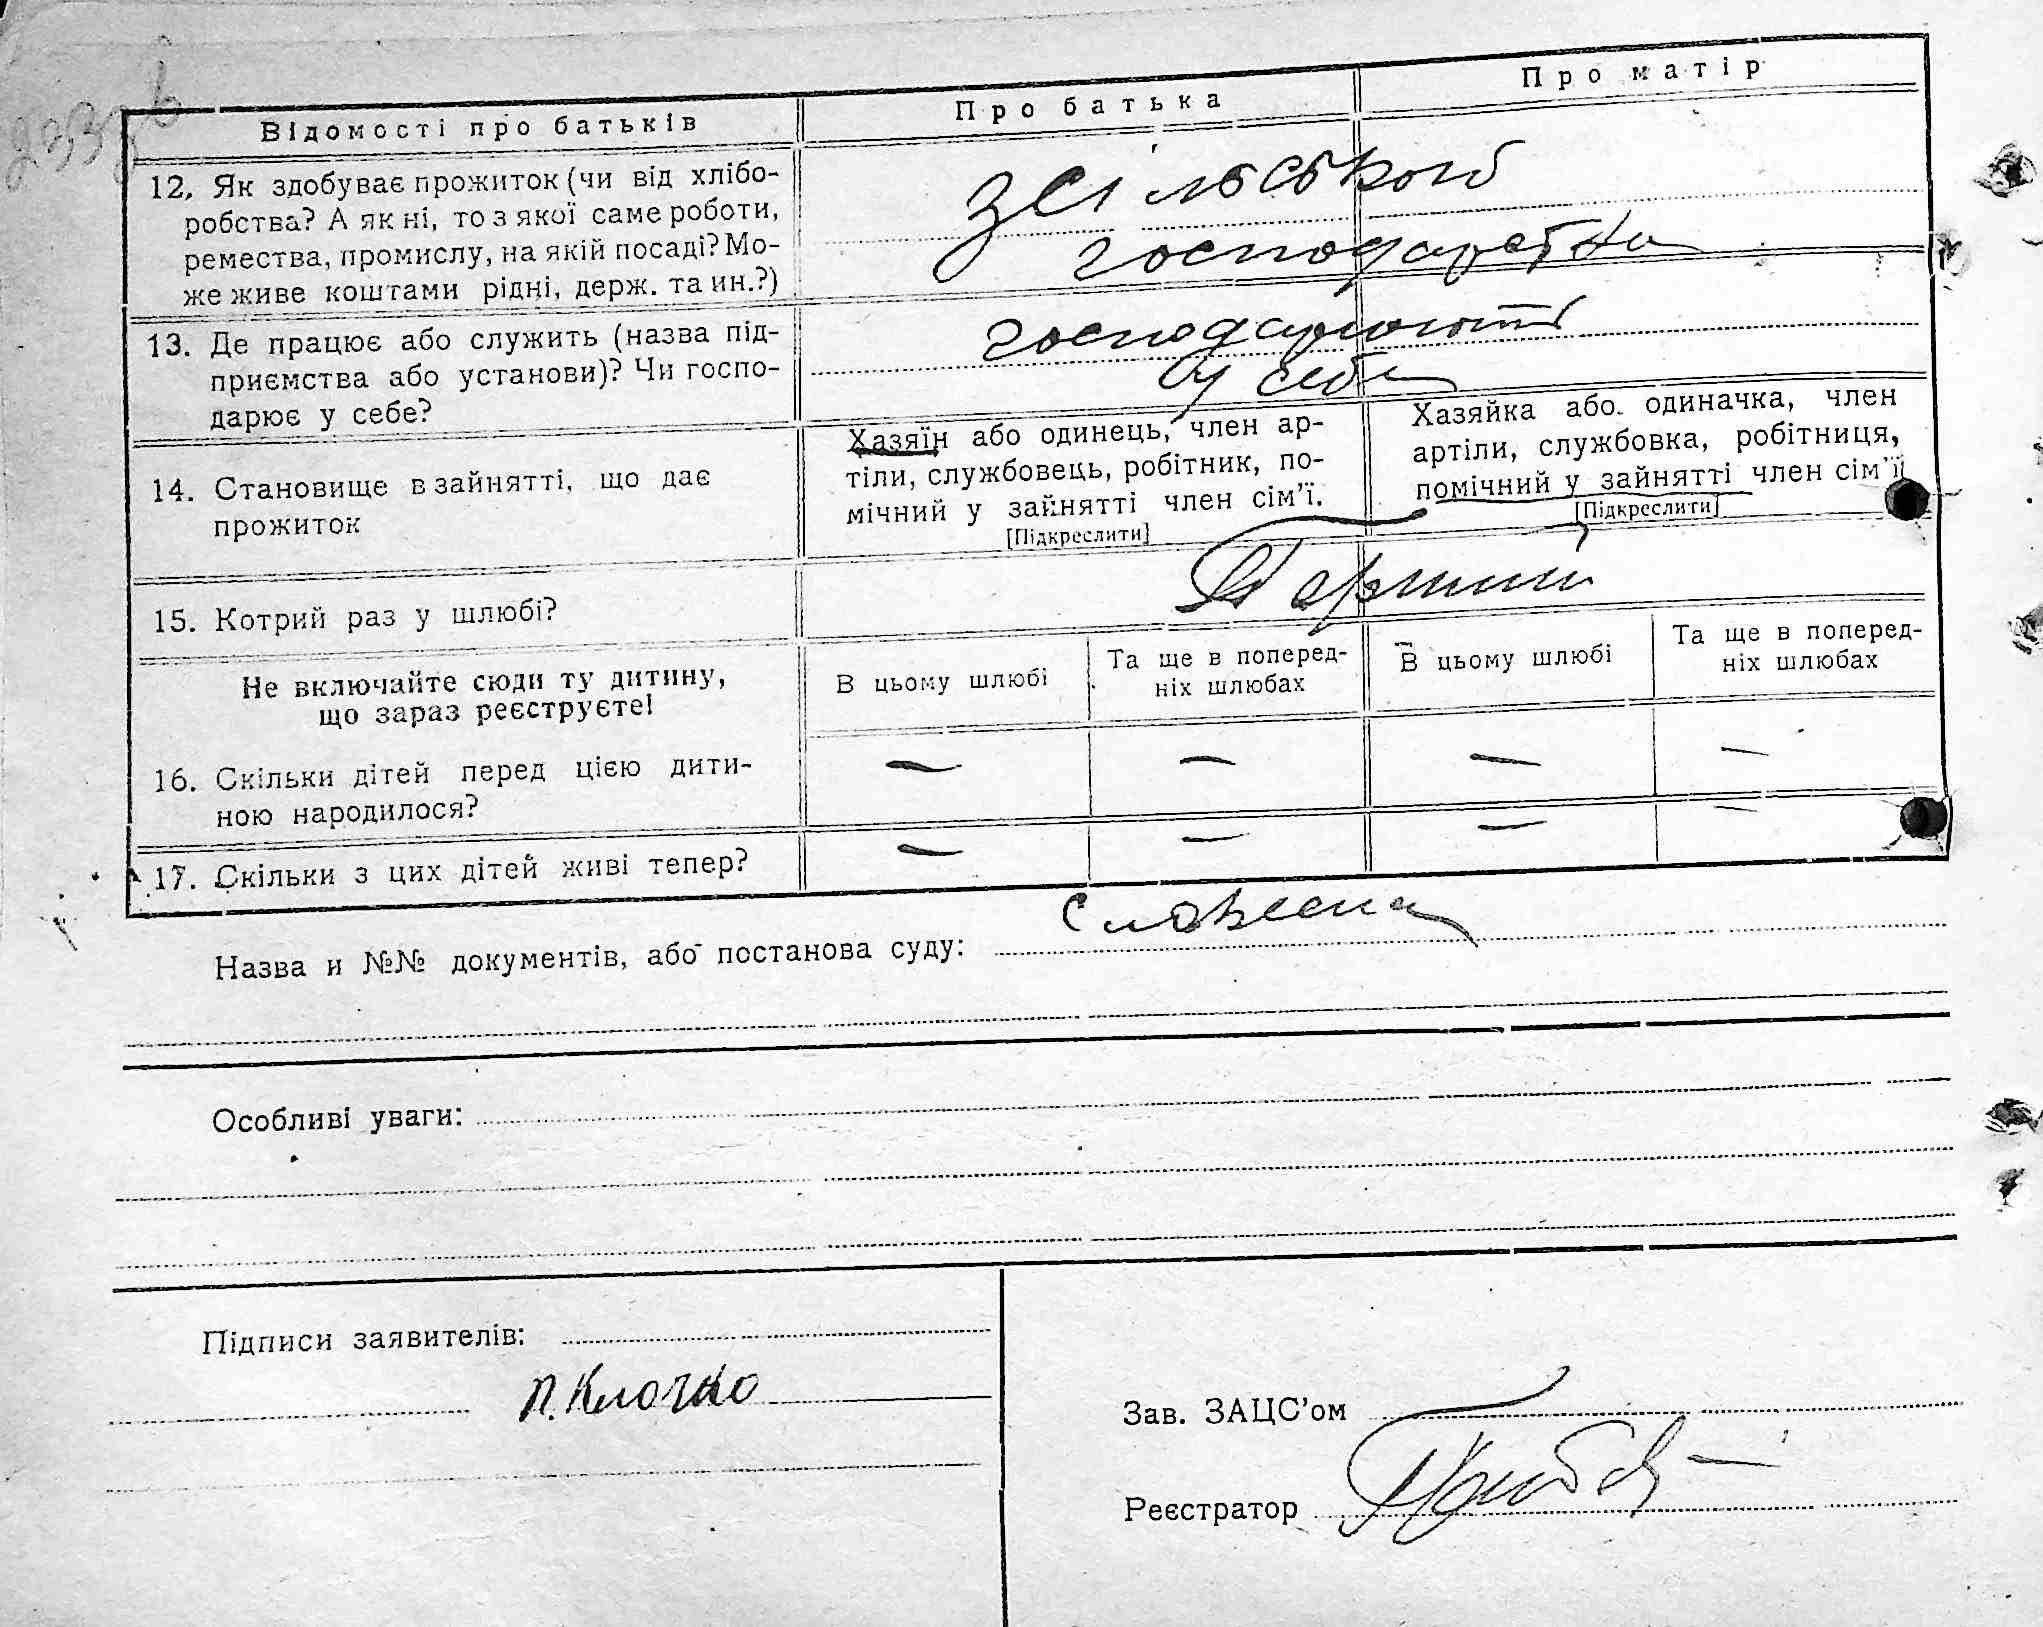 233зв
Відомості про батьків
Про батька
Про матір
12. Як здобуває прожиток (чи від хлібо-
робства? А як ні, то з якої саме роботи,
ремества, промислу, на якій посаді? Мо-
же живе коштами рідні, держ. та ин.?)
З сільського
господарства
13. Де працює або служить (назва під-
приємства або установи)? Чи госпо-
дарює у себе?
господарюють
у себе
14. Становище в зайнятті, що дає
прожиток
Хазяїн або одинець, член ар-
тіли, службовець, робітник, по-
мічний у зайнятті член сім'ї.
[Підкреслити]
Хазяйка або одиначка, член
артіли, службовка, робітниця,
помічний у зайнятті член сім'ї
[Підкреслити]
15. Котрий раз у шлюбі?
Перший
Не включайте сюди ту дитину,
що зараз реєструєте!
В цьому шлюбі
Та ще в поперед-
ніх шлюбах
В цьому шлюбі
Та ще в поперед-
ніх шлюбах
16. Скільки дітей перед цією дити-
ною народилося?
— — — —
17. Скільки з цих дітей живі тепер?
— — — —
Назва и №№ документів, або постанова суду:
Особливі уваги:
Підписи заявителів:
П. Клочко
Зав. ЗАЦС'ом
Реєстратор